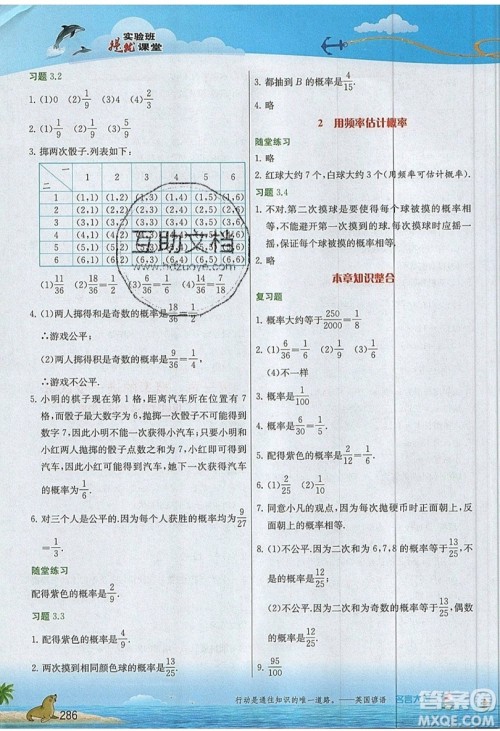 实验班
提优课堂
习题 3.2
1. (1)0 (2)1/9 (3)4/9 (4)4/9
2. (1)1/9 (2)5/9
3. 掷两次骰子.列表如下:
一
二 1 2 3 4 5 6
1 (1,1) (1,2) (1,3) (1,4) (1,5) (1,6)
2 (2,1) (2,2) (2,3) (2,4) (2,5) (2,6)
3 (3,1) (3,2) (3,3) (3,4) (3,5) (3,6)
4 (4,1) (4,2) (4,3) (4,4) (4,5) (4,6)
5 (5,1) (5,2) (5,3) (5,4) (5,5) (5,6)
6 (6,1) (6,2) (6,3) (6,4) (6,5) (6,6)
互助文档
(1)11/36 (2)18/36=1/2 (3)6/36=1/6 (4)14/16=7/18
4. (1)两人掷得和是奇数的概率18/36=1/2,
∴游戏公平;
(2)两人掷得积是奇数的概率9/36=1/4,
∴游戏不公平.
5. 小明的棋子现在第 1 格,距离汽车所在的位置有
7 格,而骰子最大数字为 6,抛掷一次骰子不可能得到
数字 7,因此小明不能一次获得小汽车;只有小明和
小红两人抛掷的骰子点数之和为 7,小红才可以得到
汽车,因此小红可能得到汽车,她下一次得到汽车
的概率为1/6.
6. 对三个人是公平的.因为每个人获胜的概率都是9/27
=1/3.
随堂练习
配得紫色的概率是2/9.
习题 3.3
1. 配得紫色的概率是4/9.
2. 两次摸到相同颜色球的概率13/25.
3. 都抽到 B 的概率是4/15.
4. 略
2 用频率估计概率
随堂练习
1. 略
2. 红球大约 7 个,白球大约 3 个(用频率可估计概率).
习题 3.4
1. 不对.第二次摸球是要使得每个球被摸的概率相等,
不能避开第一次摸过的球.每次摸球之后应该摇
匀,使得其中每个球被摸的概率相等.
2. 略
本章知识整合
复习题
1. 概率大约等于250/2000=1/8.
2. (1)6/36=1/6 (2)1/36 (3)1/6
(4)不一样
3. 这个游戏对双方是公平的.
4. 概率是12/36=1/3.
5. 配得紫色的概率是1/6.
6. (1)2/25 (2)1/10
7. 同意小凡的观点,因为每次抛硬币时正面朝上、
反面朝上的概率都是1/2.
8. (1)不公平.因为二次和为 6,7,8 的概率是13/25>
12/25.
(2)不公平.因为二次和为奇数的概率是12/25,偶数
的概率为13/25.
9. 95/100
286
行动是通往知识的唯一道路。——英国谚语